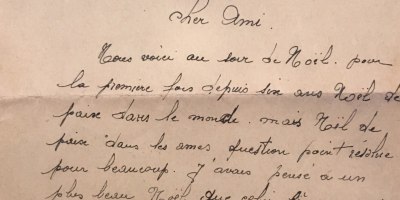 cher Ami.
Nous voici au soir de Noël. pour
la première fois depuis six ans Noël de
paix dans le monde. mais Noël de
paix dans les ames question point résolue
pour beaucoup. J'avais pensé à un
plus beau Noël que celui